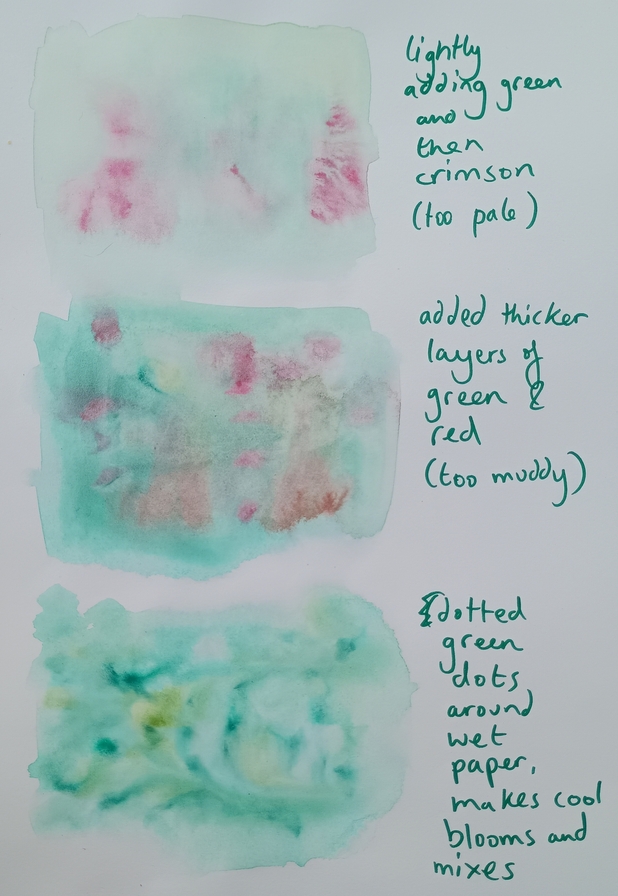 lightly
adding green
and
then
crimson
(too pale)
added thicker
layers of
green &
red
(too muddy)
dotted
green
dots
around
wet
paper,
makes cool
blooms and
mixes